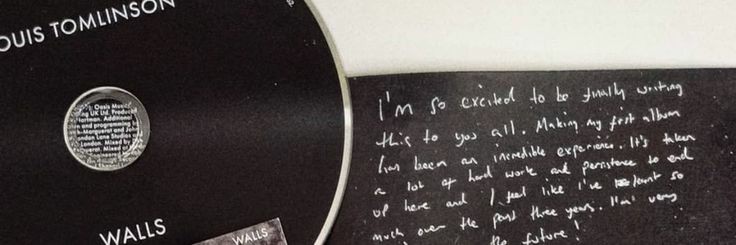 OUIS TOMLINSON
Oasis Music
ng UK Ltd. Produc
Hartman. Additional
and programming by
Marguerat and Joh
ondon Lane Studios
London. Mixed by
uerat. Mixed at
WALLS
WALLS
I'm so excited to be finally writing
this to you all. Making my first album
has been an incredible experience. It's taken
a lot of hard work and persistence to end
up here and I feel like I've learnt so
much over the past three years. I'm very
the future!